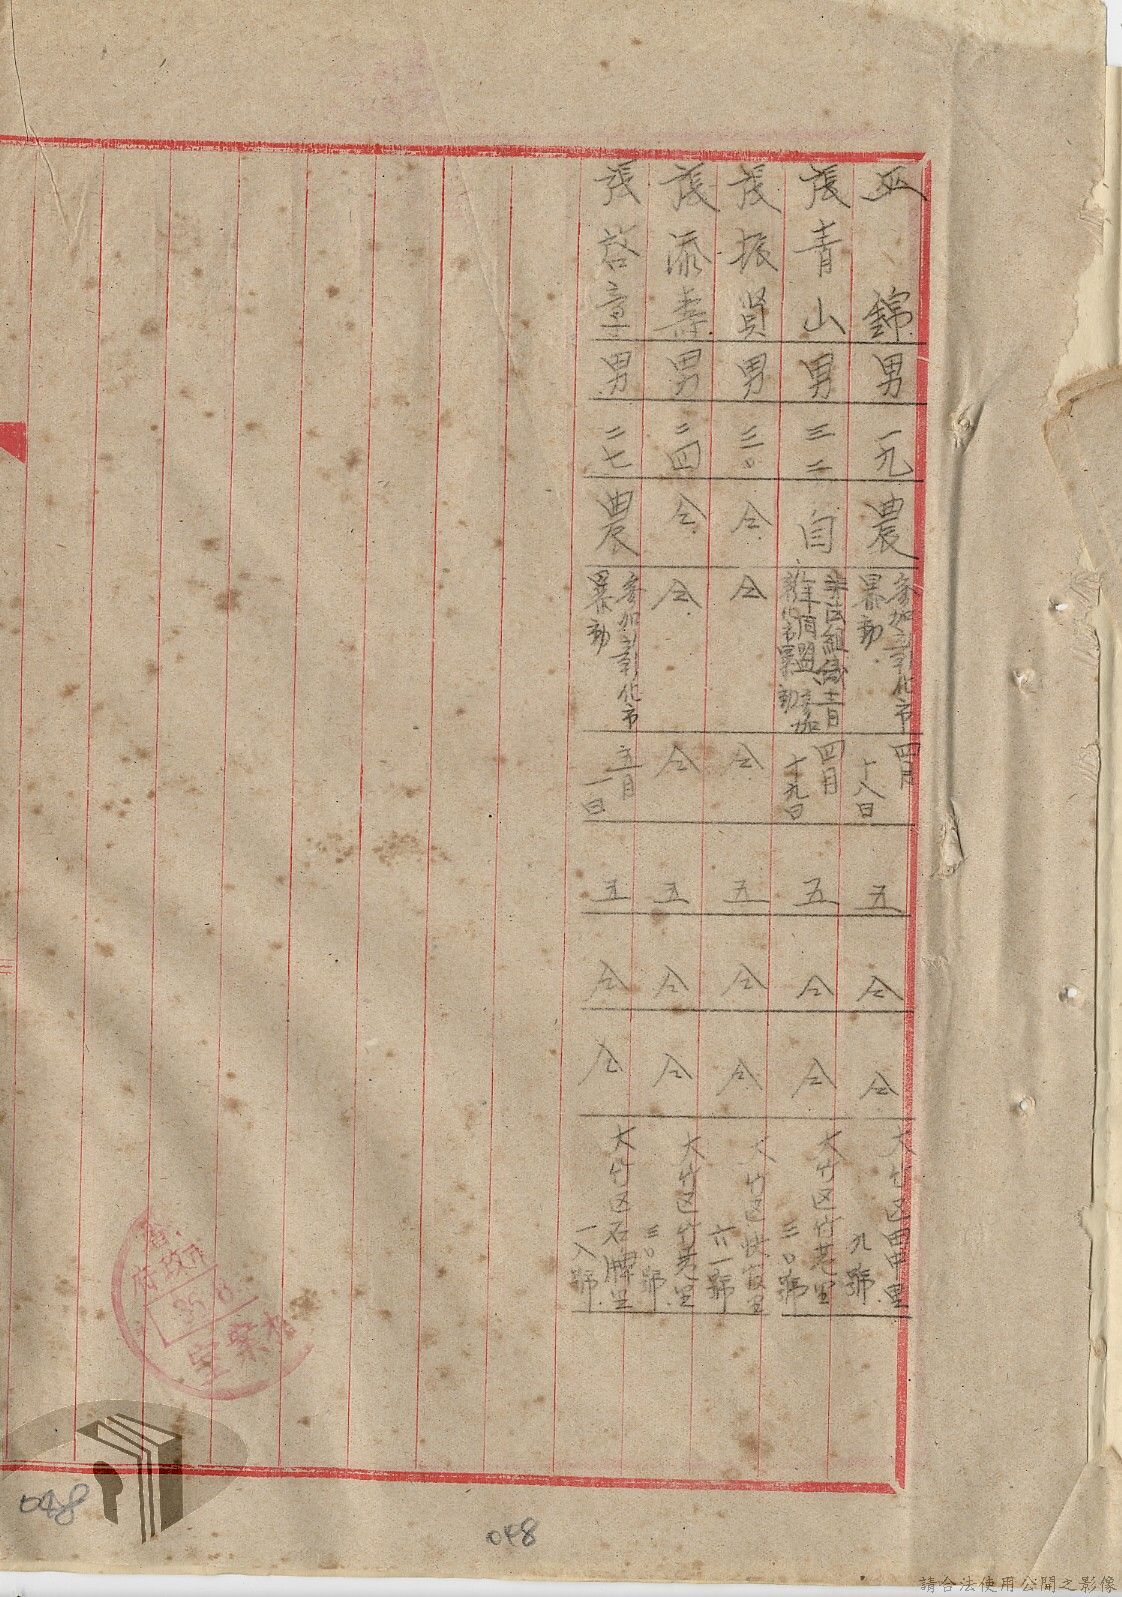 巫 錦 男 一九 農 參加彰化市暴動 四月十八日 五 仝 仝 大竹区田中里九號
張青山 男 三二 自 非法組織青年同盟、參加彰化市暴動 四月十九日 五 仝 仝 大竹区竹芑里三〇號
張振賢 男 三〇 仝 仝 仝 五 仝 仝 大竹区快官里六一號
張添壽 男 二四 仝 仝 仝 五 仝 仝 大竹区竹芑里三〇號
張啓章 男 二七 農 參加彰化市暴動 五月一日 五 仝 仝 大竹区石牌里一八號
政府
室
048
048
請合法使用公開之影像